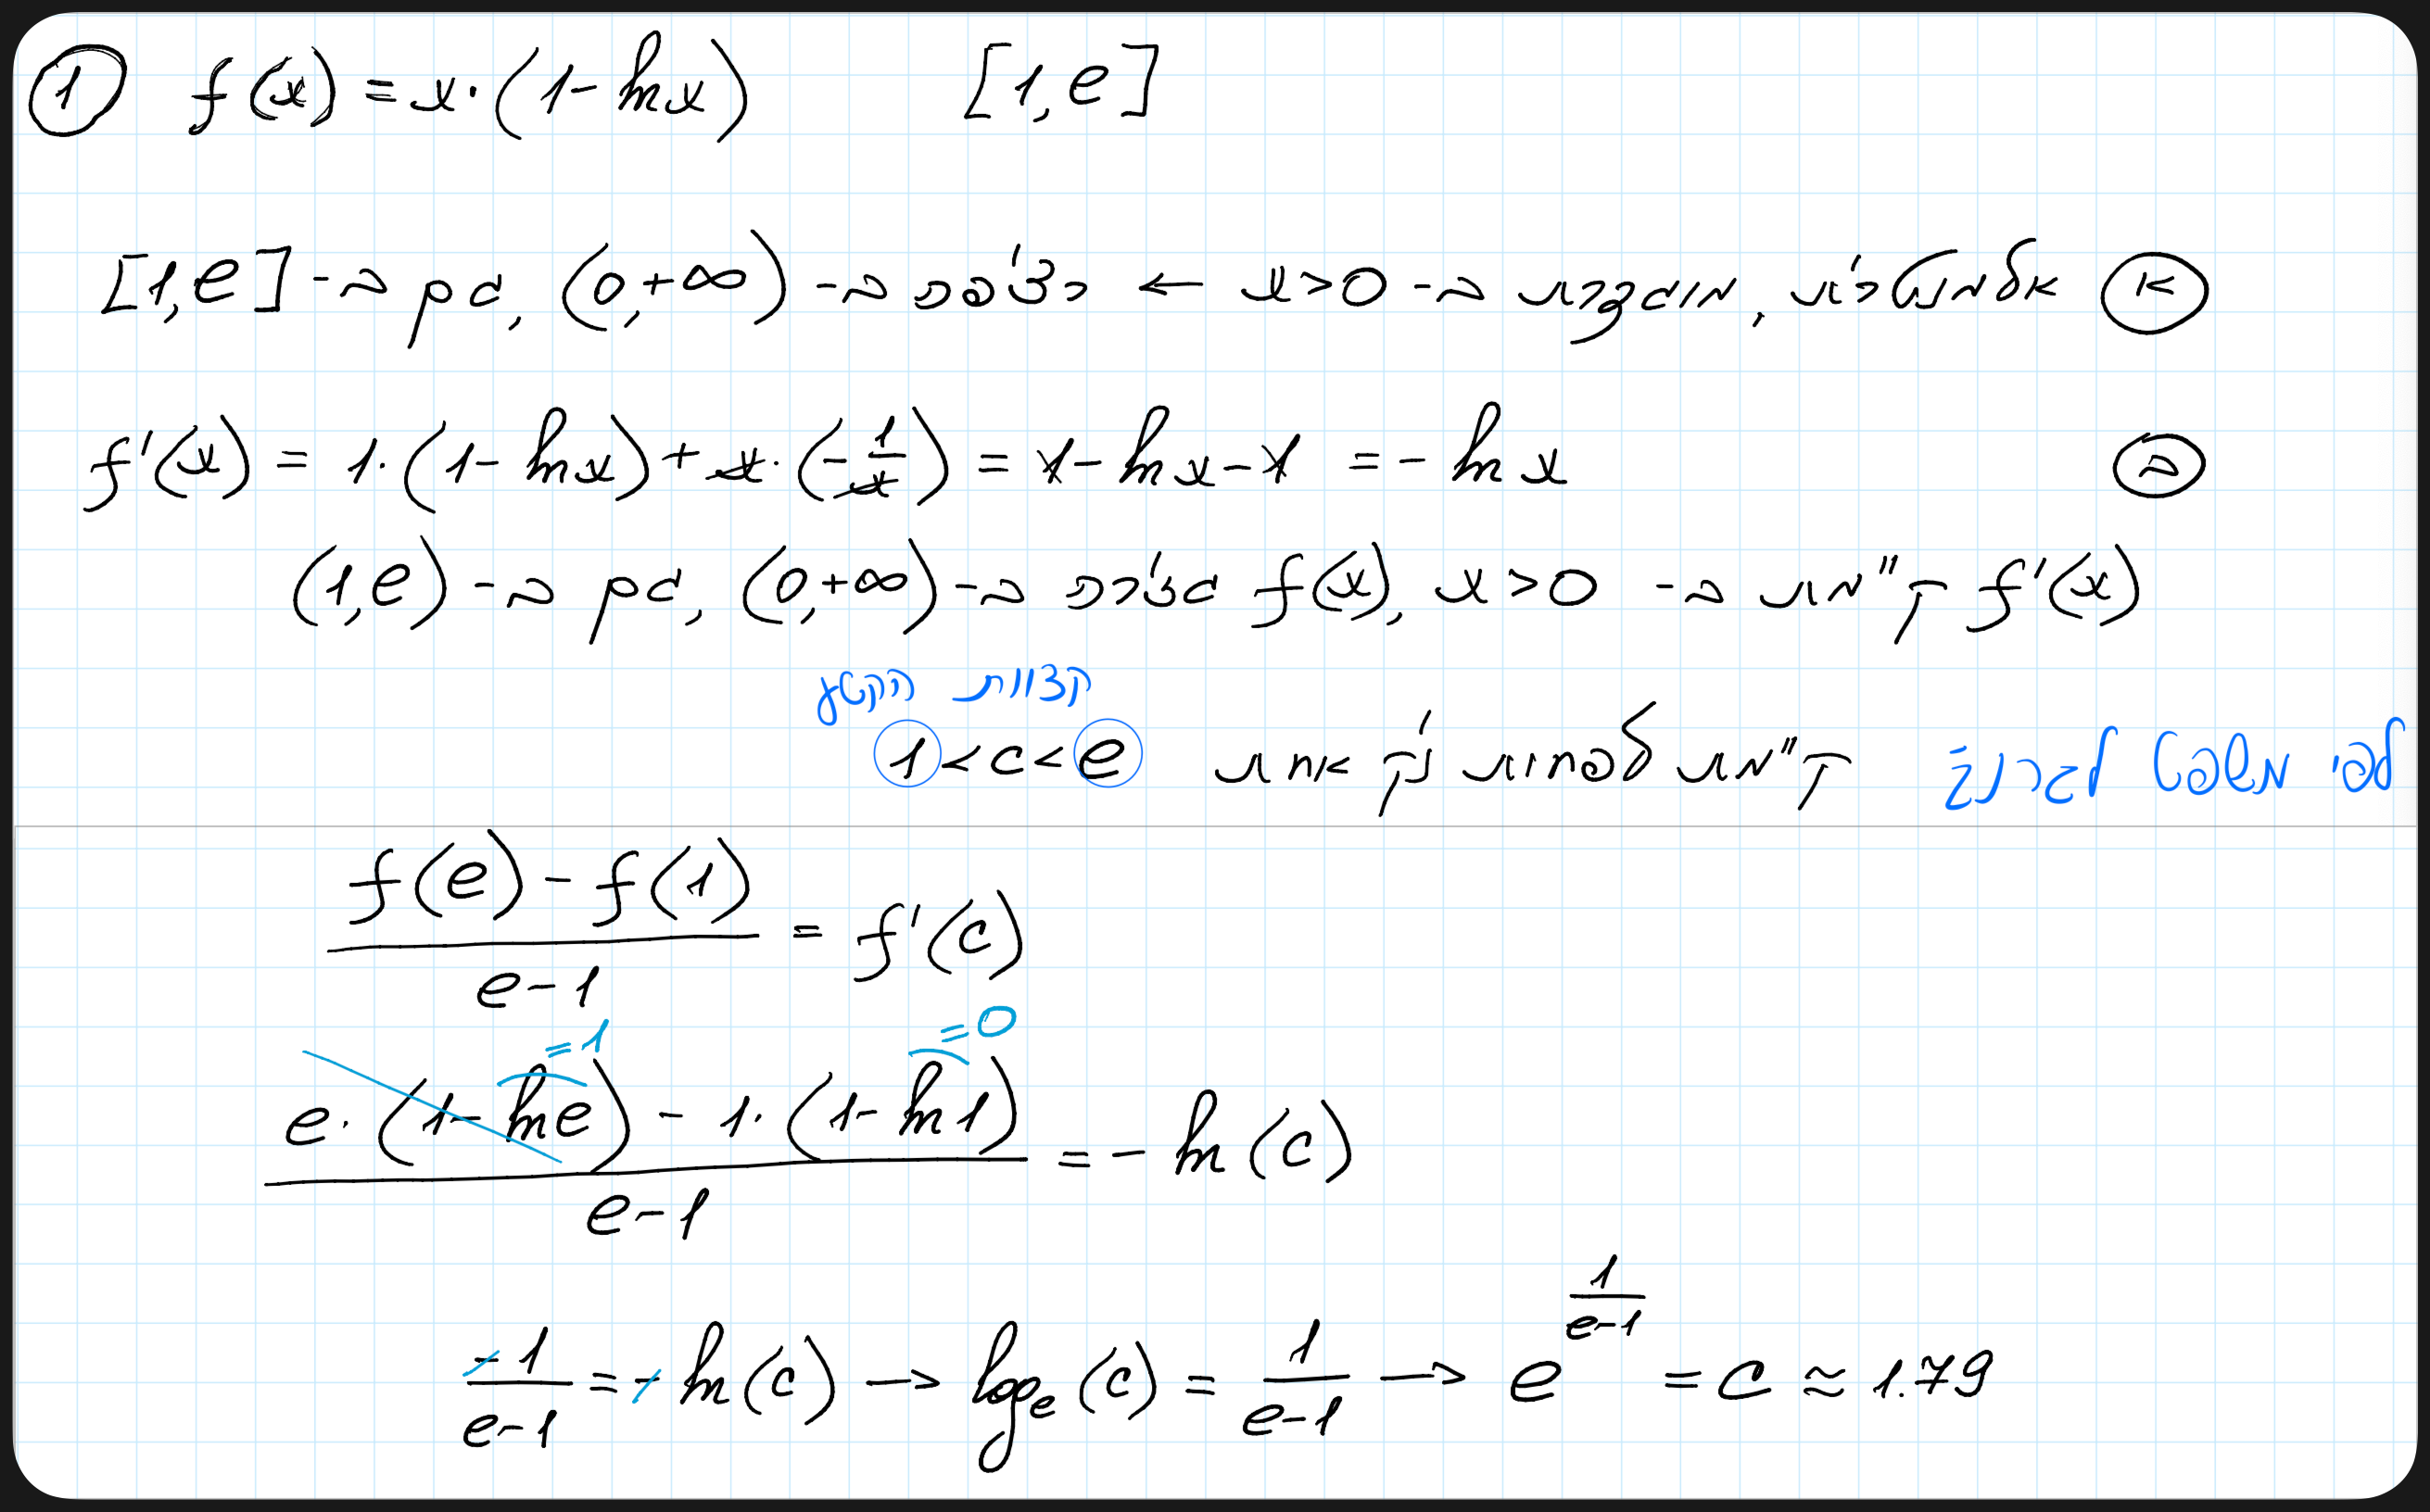 ① f(x) = x·(1-ln x)   [1,e]
(א) אלמנטרית, מוגדרת ב- x>0 ← רציפה ב- (0,+∞), גם ב- [1,e]
(ב) f'(x) = 1·(1-ln x) + x·(-1/x) = 1 - ln x - 1 = -ln x
f'(x) קיימת ב- x>0, f(x) גזירה ב- (0,+∞), גם ב- (1,e)
קצוות הקטע
לפי משפט לגרנז' קיימת לפחות נק' אחת 1<c<e
(f(e) - f(1))/(e-1) = f'(c)
=1   =0
(e·(1-ln e) - 1·(1-ln 1))/(e-1) = -ln(c)
-1/(e-1) = -ln(c) → log_e(c) = 1/(e-1) → e^(1/(e-1)) = c ≈ 1.79